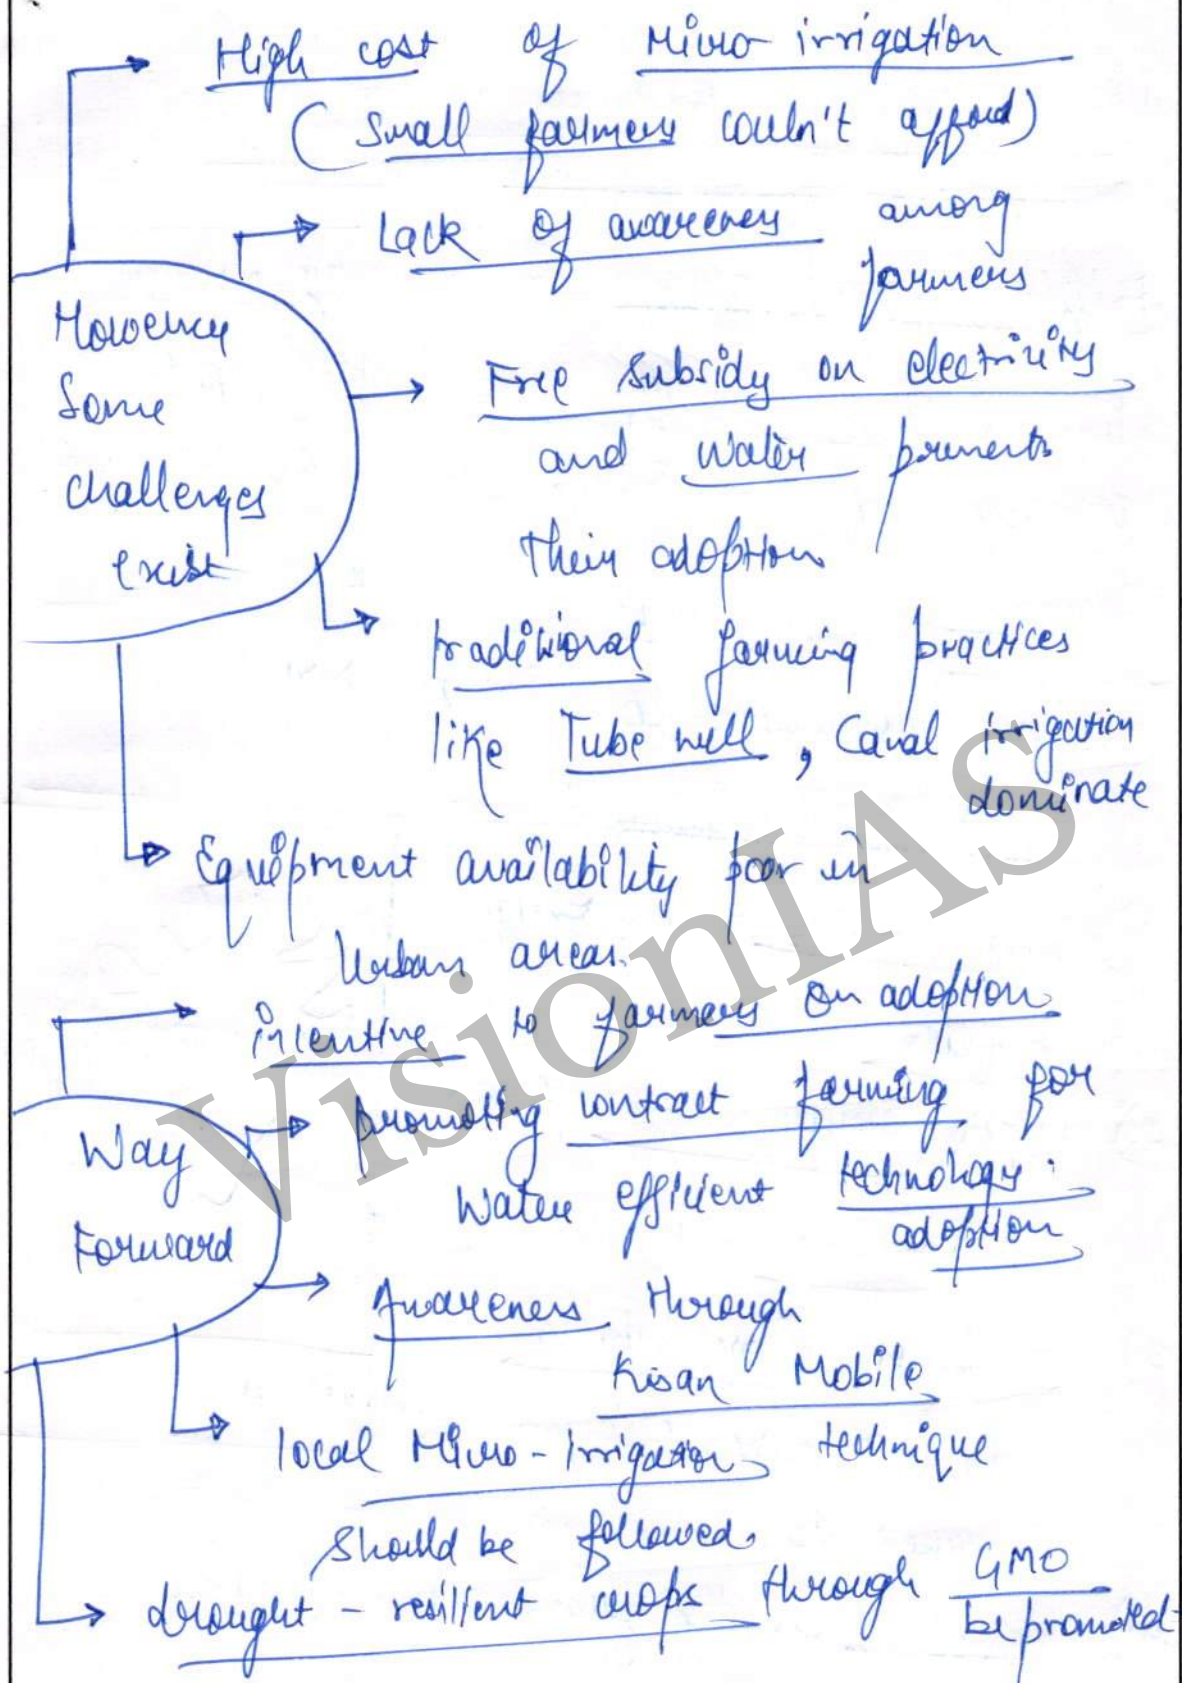 High cost of Micro irrigation
(Small farmers couln't afford)
Lack of awareness among
farmers
However
Some
challenges
exist
Free subsidy on electricity
and water prevents
their adoption
traditional farming practices
like Tube well, Canal irrigation
dominate
Equipment availability poor in
Urban areas.
incentive to farmers on adoption
Way
Forward
promoting contract farming for
Water efficient technology
adoption
Awareness through
Kisan Mobile
local Micro-Irrigation technique
should be followed.
drought-resilient crops through GMO
be promoted
VisionIAS